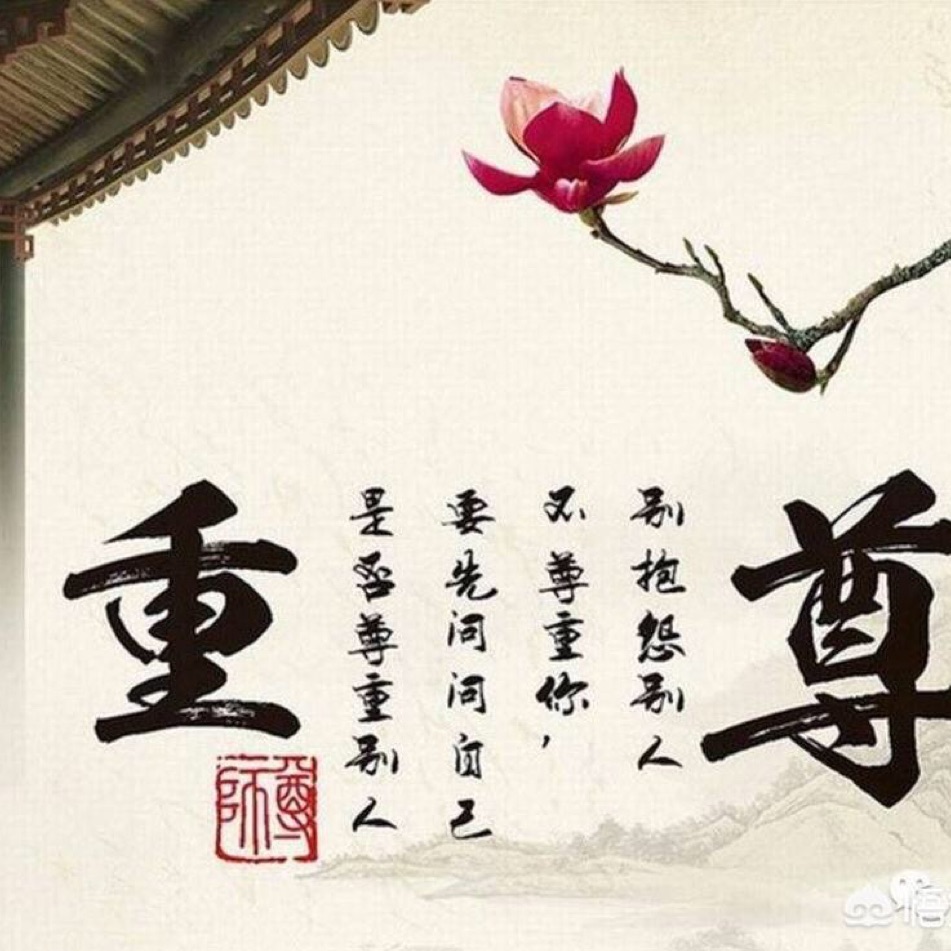 尊
别抱怨别人
不尊重你，
要先问问自己
是否尊重别人
重
尊師
悟